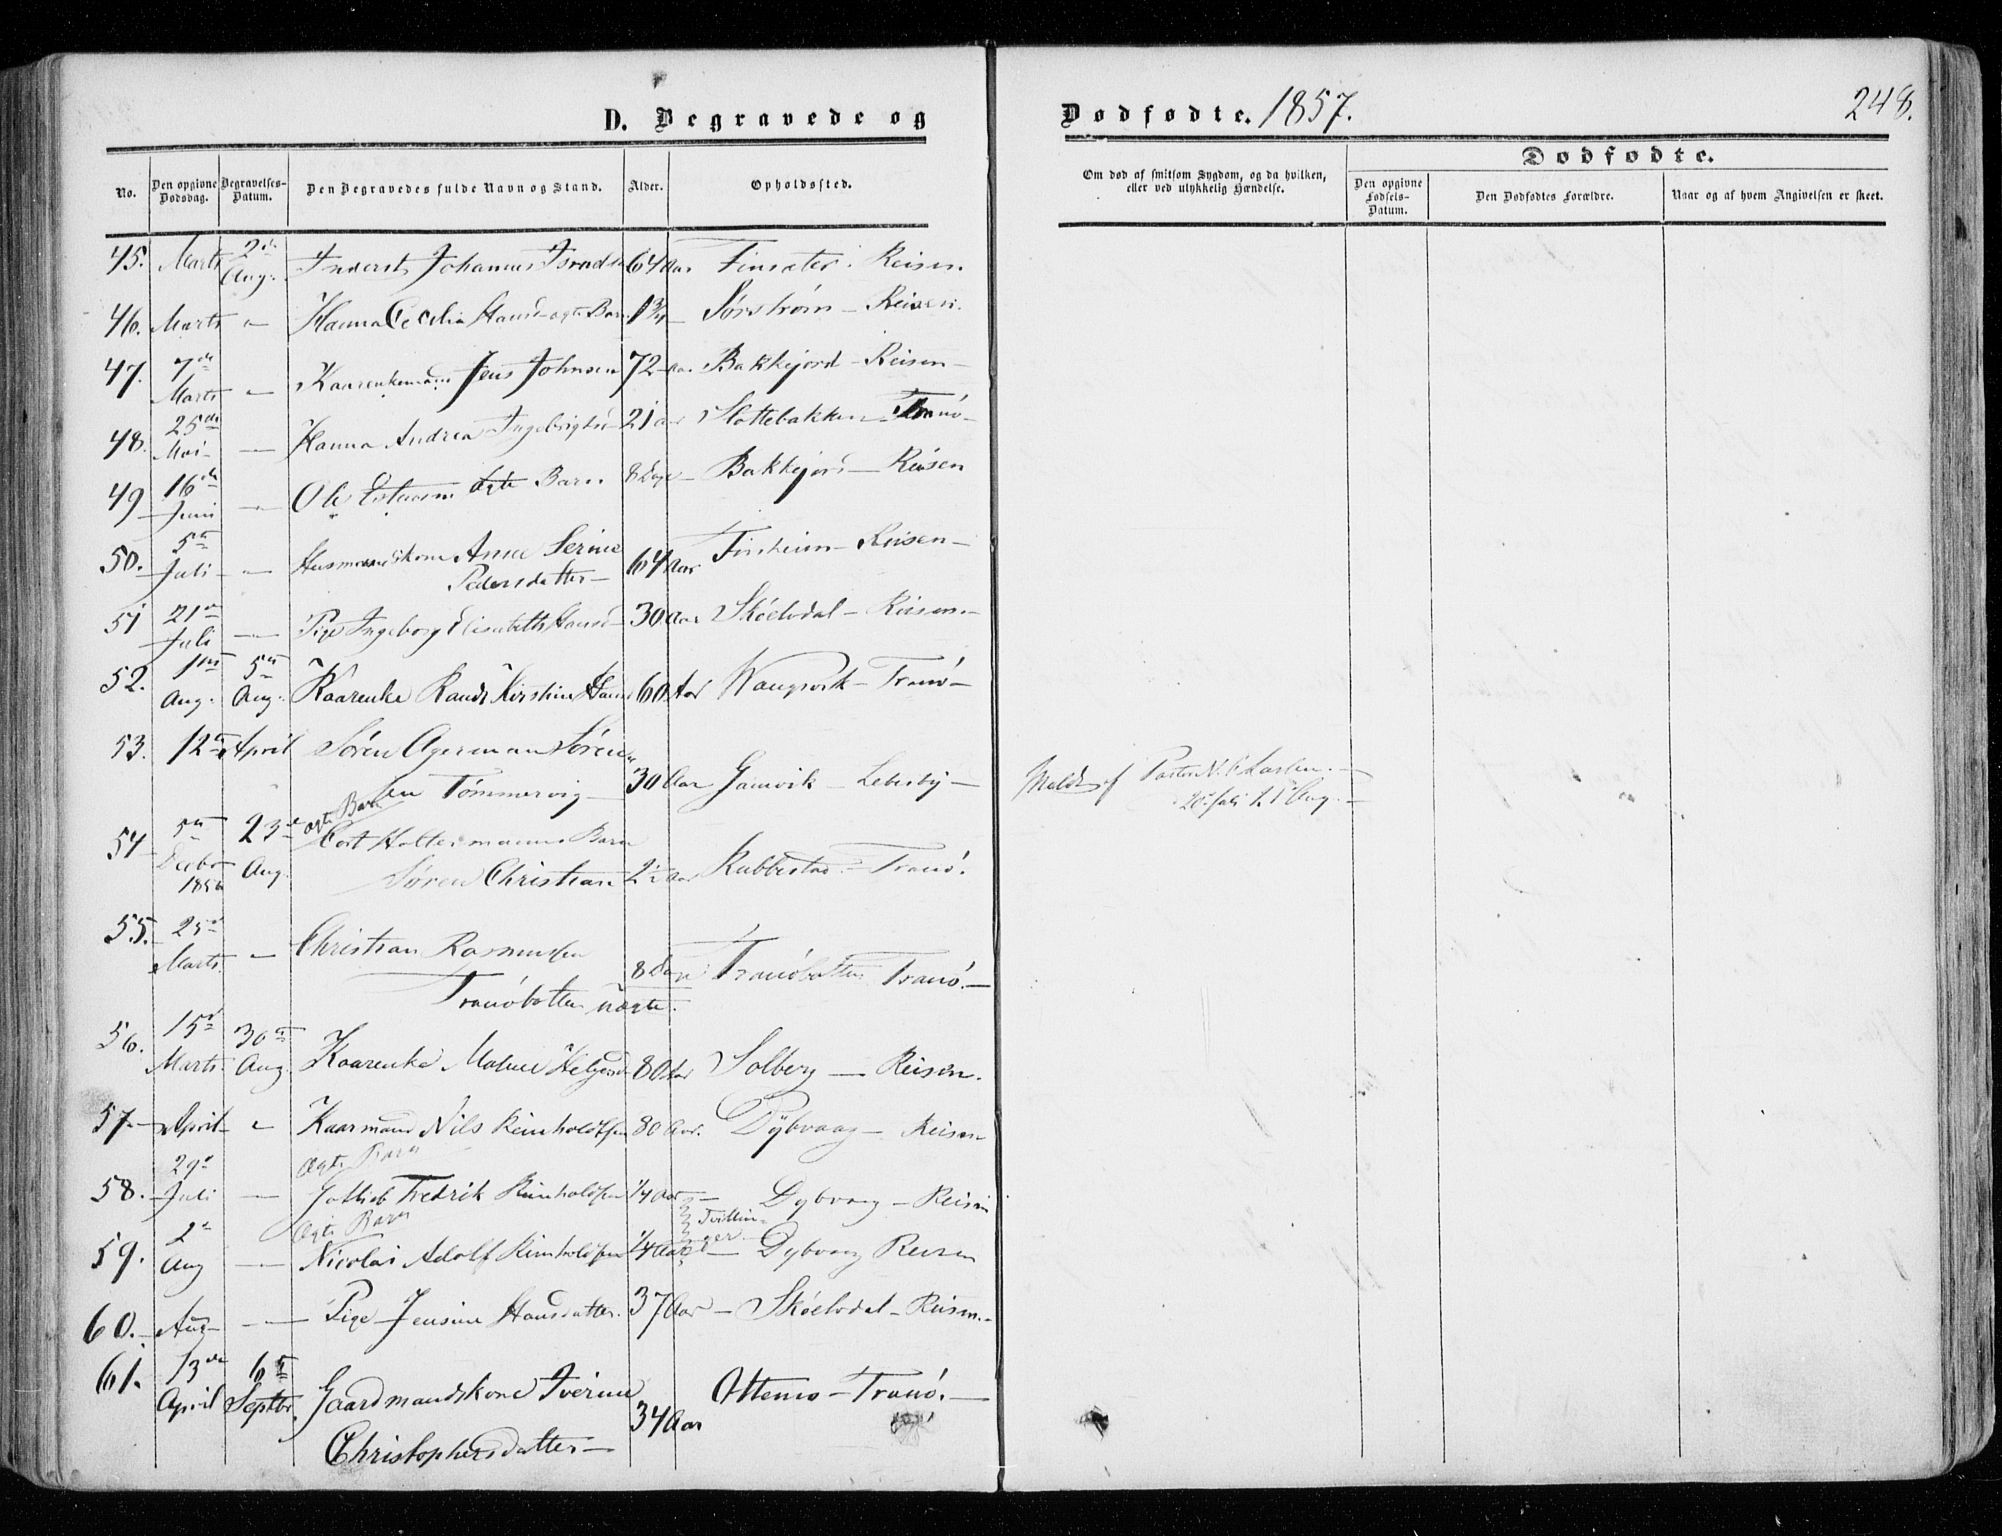 D. Begravede og
Dødfødte. 1857.
248.
No.
Den opgivne Dødsdag.
Begravelses-Datum.
Den Begravedes fulde Navn og Stand.
Alder.
Opholdssted.
Om død af smitsom Sygdom, og da hvilken, eller ved ulykkelig Hændelse.
Dødfødte.
Den opgivne Fødsels-Datum.
Den Dødfødtes Forældre.
Naar og af hvem Angivelsen er skeet.
45. Marts 2de Aug. Inderst Johannes 64 Aar Finsæter. Reisen.
46. Marts " Hanna Cecilia Hansd ægte Barn 1¾ Sørstrøm – Reisen.
47. 7de Marts " Kaarenkemand Jens Johnsen 72 – Aar Bakkejord – Reisen –
48. 25de Mai – Hanna Andrea Ingebrigtsd 21 Aar Slottebakken – Tranö –
49 16de Juni – Ole ægte Barn 8 Dage – Bakkejord – Reisen
50. 5te Juli – Husmandskone Anne Serine 64 Aar Finheim – Reisen –
Pedersdatter –
51 21de Juli – Pige Ingeborg Elisabeth Hansd 30 Aar Sköelvdal – Reisen –
52. 1ste Aug. 5te Aug. Kaarenke Kirstine Hansd 60 Aar Wangsvik – Tranö –
53. 12te April Sören Agerman Sören-
sen Tömmervig – 30 Aar Gamvik – Lebesby – Meldt af Pastor N. C. Larsen. –
20 Juli 1 Aug. –
54 5te Decbr 1856 23de Aug. ægte Barn
Cort Holtermanns Barn
Sören Christian 2½ Aar Rubbestad. – Tranö.
55. 25de Marts. – Christian Rasmussen
Tranöbotten uægte. 8 Dage Tranöbotten Tranö. –
56. 15de Marts. 30te Aug. Kaarenke Malene Helgesd 80 Aar Solberg – Reisen.
57 – April – " Kaarmand Nils Reinholdtsen 80 Aar. Dÿbvaag – Reisen
ægte Barn
58. 29de Juli – Gotlieb Fredrik Reinholdsen ¼ Aar – Dybvaag – Reisen
ægte Barn Tvillin-
ger
59. 2de Aug – Nicolai Adolf Reinholdsen ¼ Aar – Dybvaag Reisen
60. – Aug – – Pige Jensine Hansdatter. 37 Aar – Sköelvdal – Reisen. –
61. 13de April 6te Septbr. Gaardmandskone Iverine
Christophersdatter – 34 Aar Ottenes – Tranö. –